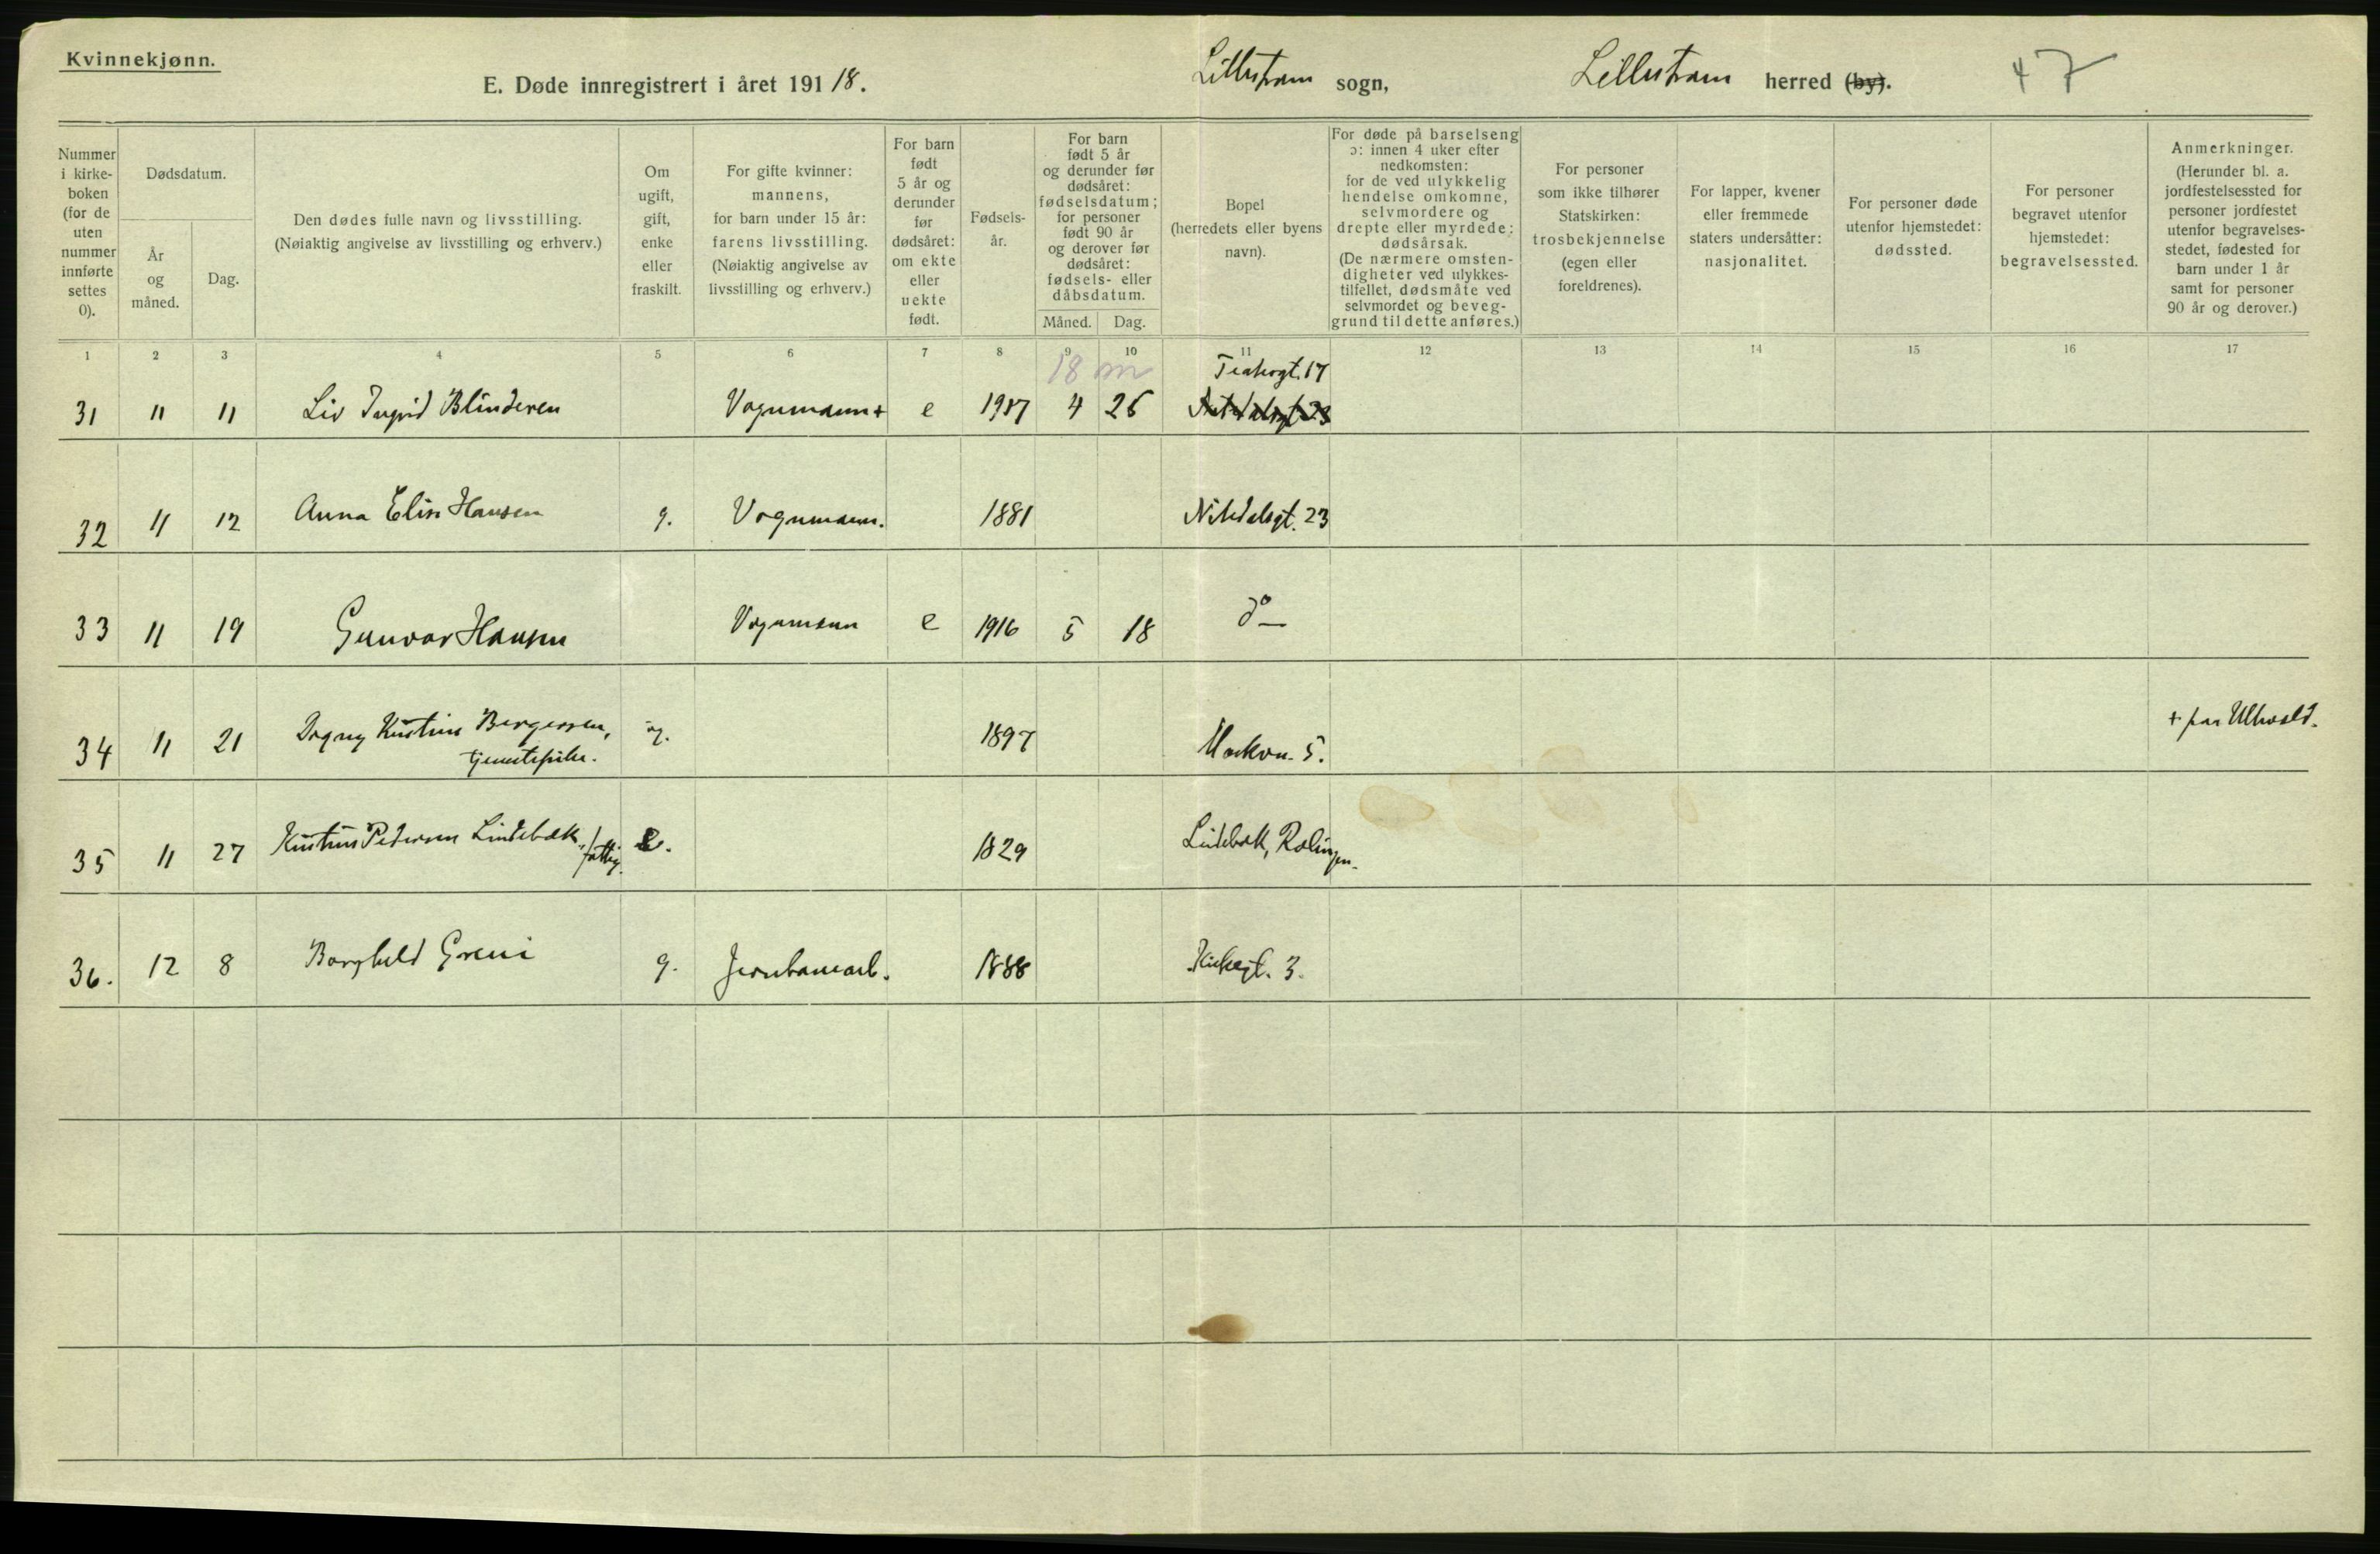 Kvinnekjønn.
E. Døde innregistrert i året 191 18. Lillestrøm sogn, Lillestrøm herred (by). 47
Nummer i kirke-boken (for de uten nummer innførte settes 0).
Dødsdatum.
År og måned.
Dag.
Den dødes fulle navn og livsstilling. (Nøiaktig angivelse av livsstilling og erhverv.)
Om ugift, gift, enke eller fraskilt.
For gifte kvinner: mannens, for barn under 15 år: farens livsstilling. (Nøiaktig angivelse av livsstilling og erhverv.)
For barn født 5 år og derunder før dødsåret: om ekte eller uekte født.
Fødsels-år.
For barn født 5 år og derunder før dødsåret: fødselsdatum; for personer født 90 år og derover før dødsåret: fødsels- eller dåbsdatum.
Måned. Dag.
Bopel (herredets eller byens navn).
For døde på barselseng ɔ: innen 4 uker efter nedkomsten: for de ved ulykkelig hendelse omkomne, selvmordere og drepte eller myrdede: dødsårsak. (De nærmere omsten-digheter ved ulykkes-tilfellet, dødsmåte ved selvmordet og beveg-grund til dette anføres.)
For personer som ikke tilhører Statskirken: trosbekjennelse (egen eller foreldrenes).
For lapper, kvener eller fremmede staters undersåtter: nasjonalitet.
For personer døde utenfor hjemstedet: dødssted.
For personer begravet utenfor hjemstedet: begravelsessted.
Anmerkninger. (Herunder bl. a. jordfestelsessted for personer jordfestet utenfor begravelses-stedet, fødested for barn under 1 år samt for personer 90 år og derover.)
1 2 3 4 5 6 7 8 9 10 11 12 13 14 15 16 17
18 m
31 11 11 Liv Ingrid Blinderen Vognmann + e 1917 4 26 17 Nitedalsgt. 23
32 11 12 Anna Elise Hansen g. Vognmann. 1881 Nitedalsgt. 23
33 11 19 Gunvor Hansen Vognmann e 1916 5 18 do —
34 11 21 Dagny Kristine Bergersen, ug. 1897 5. +
tjenestepike.
35 11 27 Kristine Pedersen Lindebæk, fattig. e. 1829 Lindebæk, Rælingen.
36. 12 8 Borghild Greni g. Jernbanearb. 1888 Kirkegt. 3.